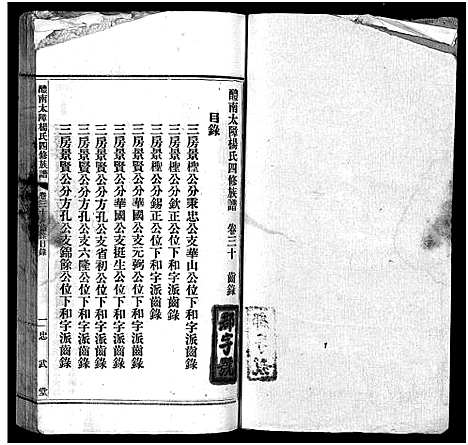 醴南太障楊氏四修族譜 卷三十 齒錄
目錄
三房景樫公分秉忠公支華山公位下和字派齒錄
三房景樫公分欽正公位下和字派齒錄
三房景樫公分錫正公位下和字派齒錄
三房景賢公分華國公支元弼公位下和字派齒錄
三房景賢公分華國公支挺生公位下和字派齒錄
三房景賢公分方孔公支省初公位下和字派齒錄
三房景賢公分方孔公支六隆公位下和字派齒錄
三房景賢公分方孔公支錦餘公位下和字派齒錄
醴南太障楊氏四修族譜 卷三十 目錄 一 忠武堂
字號